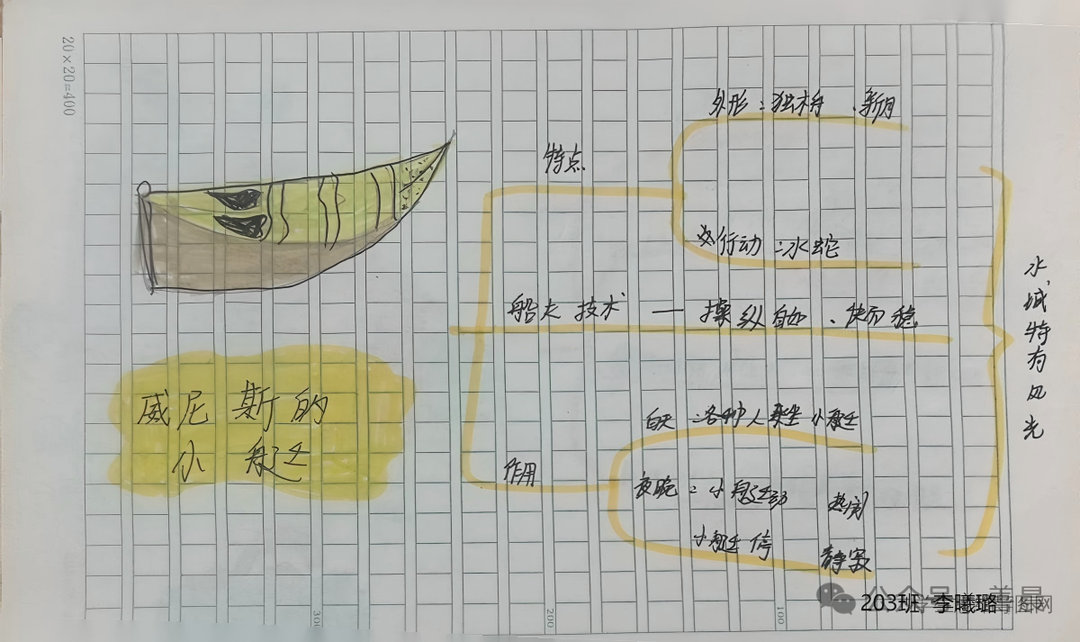 20×20=400
外形：独木舟、新月
特点
行动：水蛇
船夫 技术 — 操纵自如、快而稳
水城特有风光
威尼斯的
小艇
白天：各种人乘坐小艇
作用
夜晚：小艇动 热闹
小艇停 静寂
300
200
100
公众号
203班 李曦璐